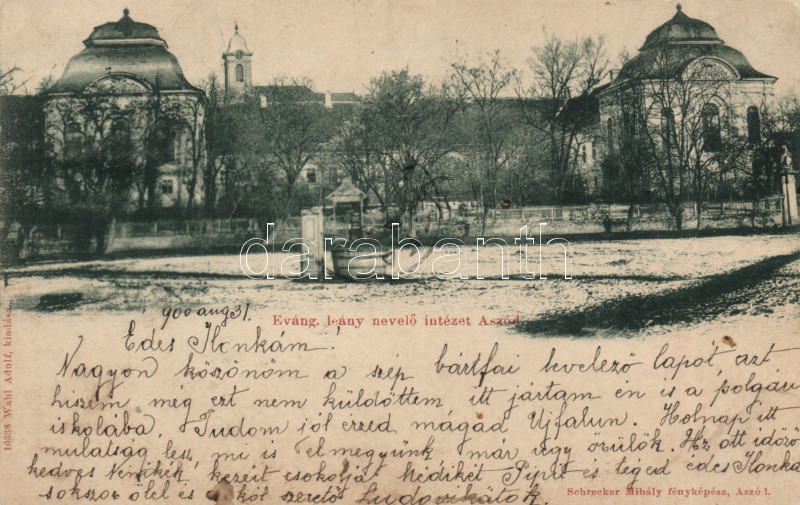 darabanth
Eváng. leány nevelő intézet Aszód.
10338 Wahl Adolf, kiadása.
900 aug 31.
Édes Ilonkám!
Nagyon köszönöm a szép bártfai levelező lapot, azt
hiszem még ezt nem küldöttem itt jártam én is a polgári
iskolába. Tudom jól érzed magad Ujfalun. Holnap itt
mulatság lesz, mi is elmegyünk már úgy örülök. Az ott időző
kedves Nénikék kezeit csókolja Hédikét Pipit és téged édes Ilonka
sokszor ölel és csókol szerető Ludovikátok.
Schrecker Mihály fényképész, Aszód.